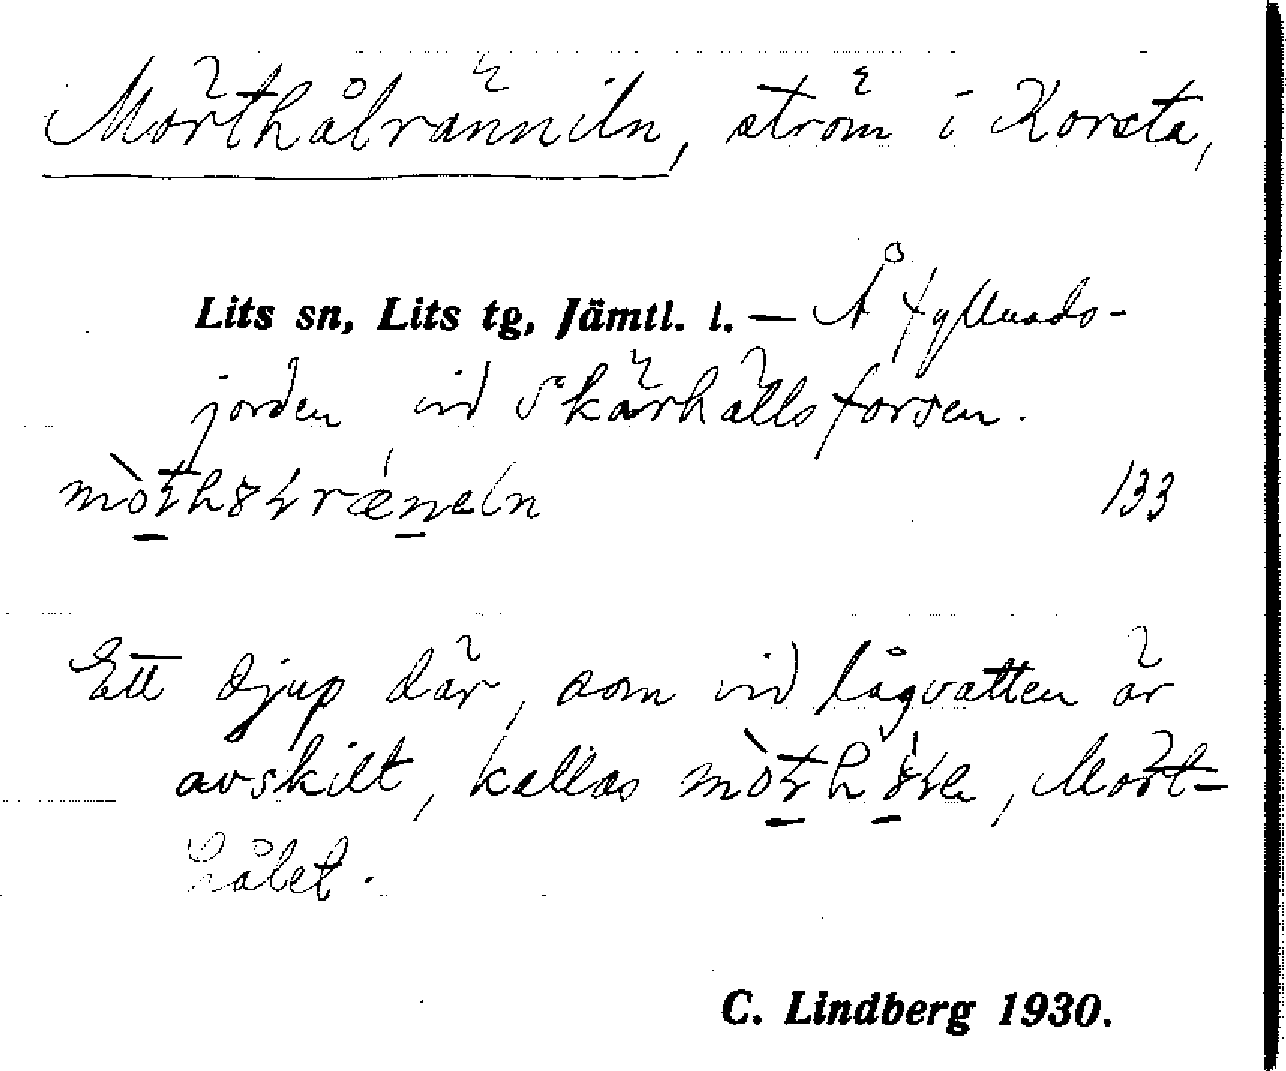 Mörthålränniln, ström i Korsta,
Lits sn, Lits tg, Jämtl. l. — Å fyllnads-
jorden vid Skärhällsforsen.
133
Ett djup där, som vid lågvatten är
avskilt, kallas , Mört-
hålet.
C. Lindberg 1930.